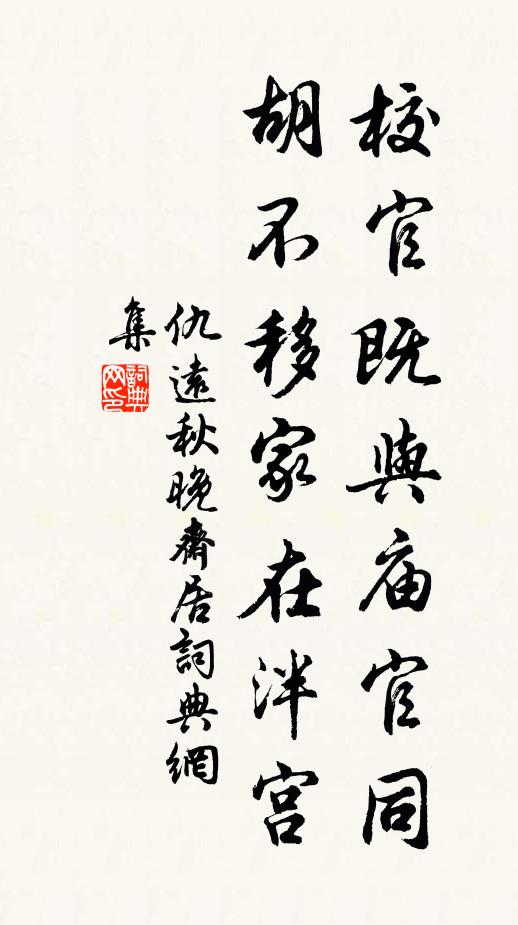 校官既與庙官同
胡不移家在泮宫
仇遠秋晚齋居詞典網
集
詞典
网印